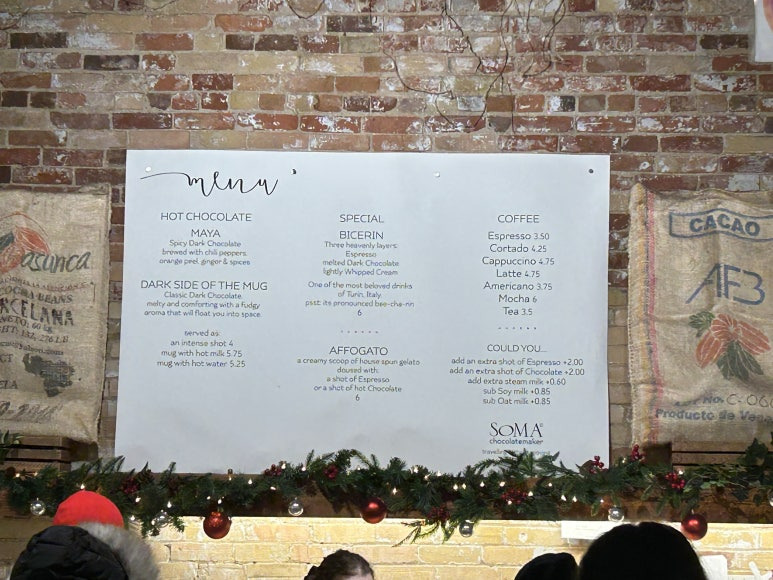 menu
HOT CHOCOLATE
MAYA
Spicy Dark Chocolate
brewed with chili peppers,
orange peel, ginger & spices
DARK SIDE OF THE MUG
Classic Dark Chocolate
melty and comforting with a fudgy
aroma that will float you into space.
served as:
an intense shot 4
mug with hot milk 5.75
mug with hot water 5.25
SPECIAL
BICERIN
Three heavenly layers:
Espresso
melted Dark Chocolate
lightly Whipped Cream
One of the most beloved drinks
of Turin, Italy.
psst: its pronounced bee-cha-rin
6
AFFOGATO
a creamy scoop of house spun gelato
doused with:
a shot of Espresso
or a shot of hot Chocolate
6
COFFEE
Espresso 3.50
Cortado 4.25
Cappuccino 4.75
Latte 4.75
Americano 3.75
Mocha 6
Tea 3.5
COULD YOU...
add an extra shot of Espresso +2.00
add an extra shot of Chocolate +2.00
add extra steam milk +0.60
sub Soy milk +0.85
sub Oat milk +0.85
SOMA
chocolatemaker
asunca
CELANA
CACAO
AF3
Producto de